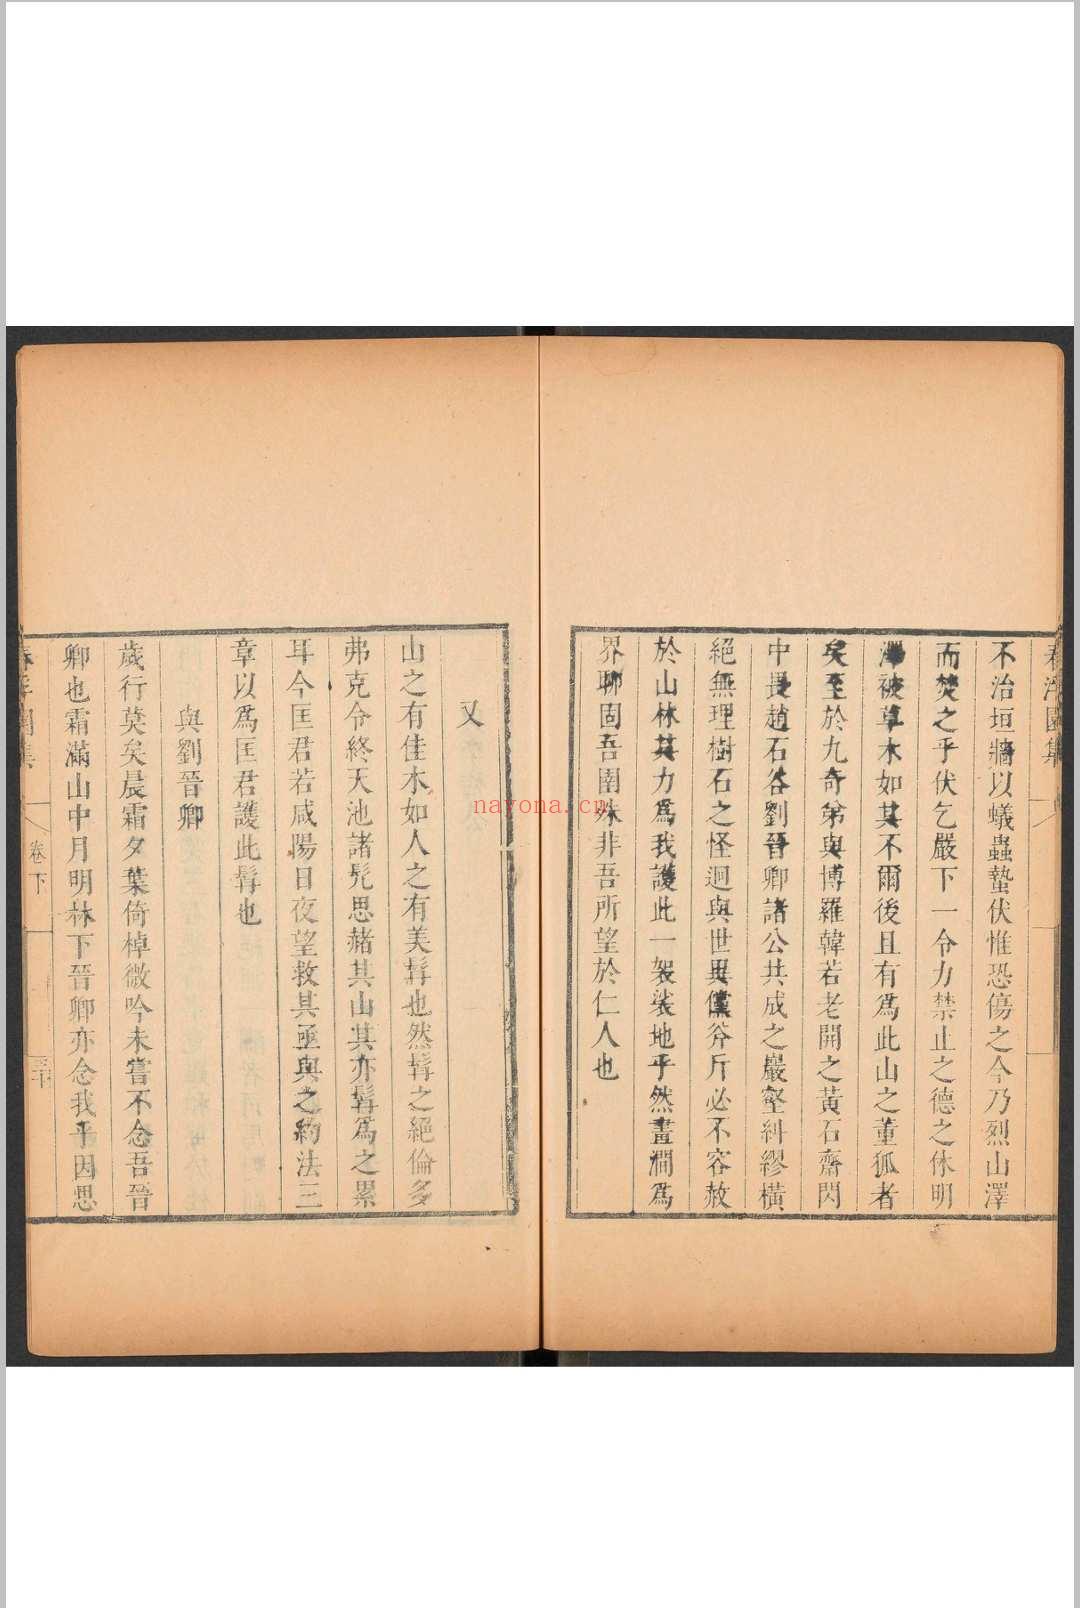 不治垣牆以蟻蟲蟄伏惟恐傷之今乃烈山澤
而焚之乎伏乞嚴下一令力禁止之德之休明
澤被草木如其不爾後且有爲此山之董狐者
矣至於九奇弟與博羅韓若老開之黃石齋閃
中畏趙石各劉晉卿諸公共成之巖壑糾繆橫
絕無理樹石之怪迥與世異儻斧斤必不容赦
於山林其力爲我護此一袈裟地乎然畫澗爲
界聊固吾圉殊非吾所望於仁人也
又
山之有佳木如人之有美髯也然髯之絕倫多
弗克令終天池諸髡思赭其山其亦髯爲之累
耳今匡君若咸陽日夜望救其亟與之約法三
章以爲匡君護此髯也
與劉晉卿
歲行莫矣晨霜夕葉倚棹微吟未嘗不念吾晉
卿也霜滿山中月明林下晉卿亦念我乎因思
卷下
nayona.cn